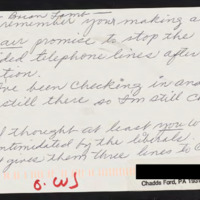 Brian Lamb —
remember your making a
air promise to stop the
ded telephone lines after
tion.
've been checking in an
still there so I'm still c
I thought at least you w
ntimidated by the liberals.
gives them three lines to
O. WJ
Chadds Ford, PA 193